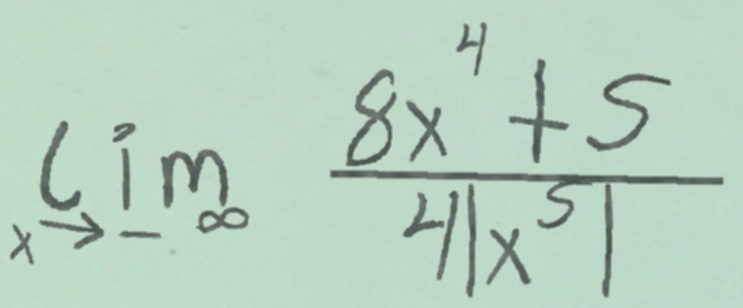 lim x→-∞ (8x⁴ + 5) / (4|x⁵|)